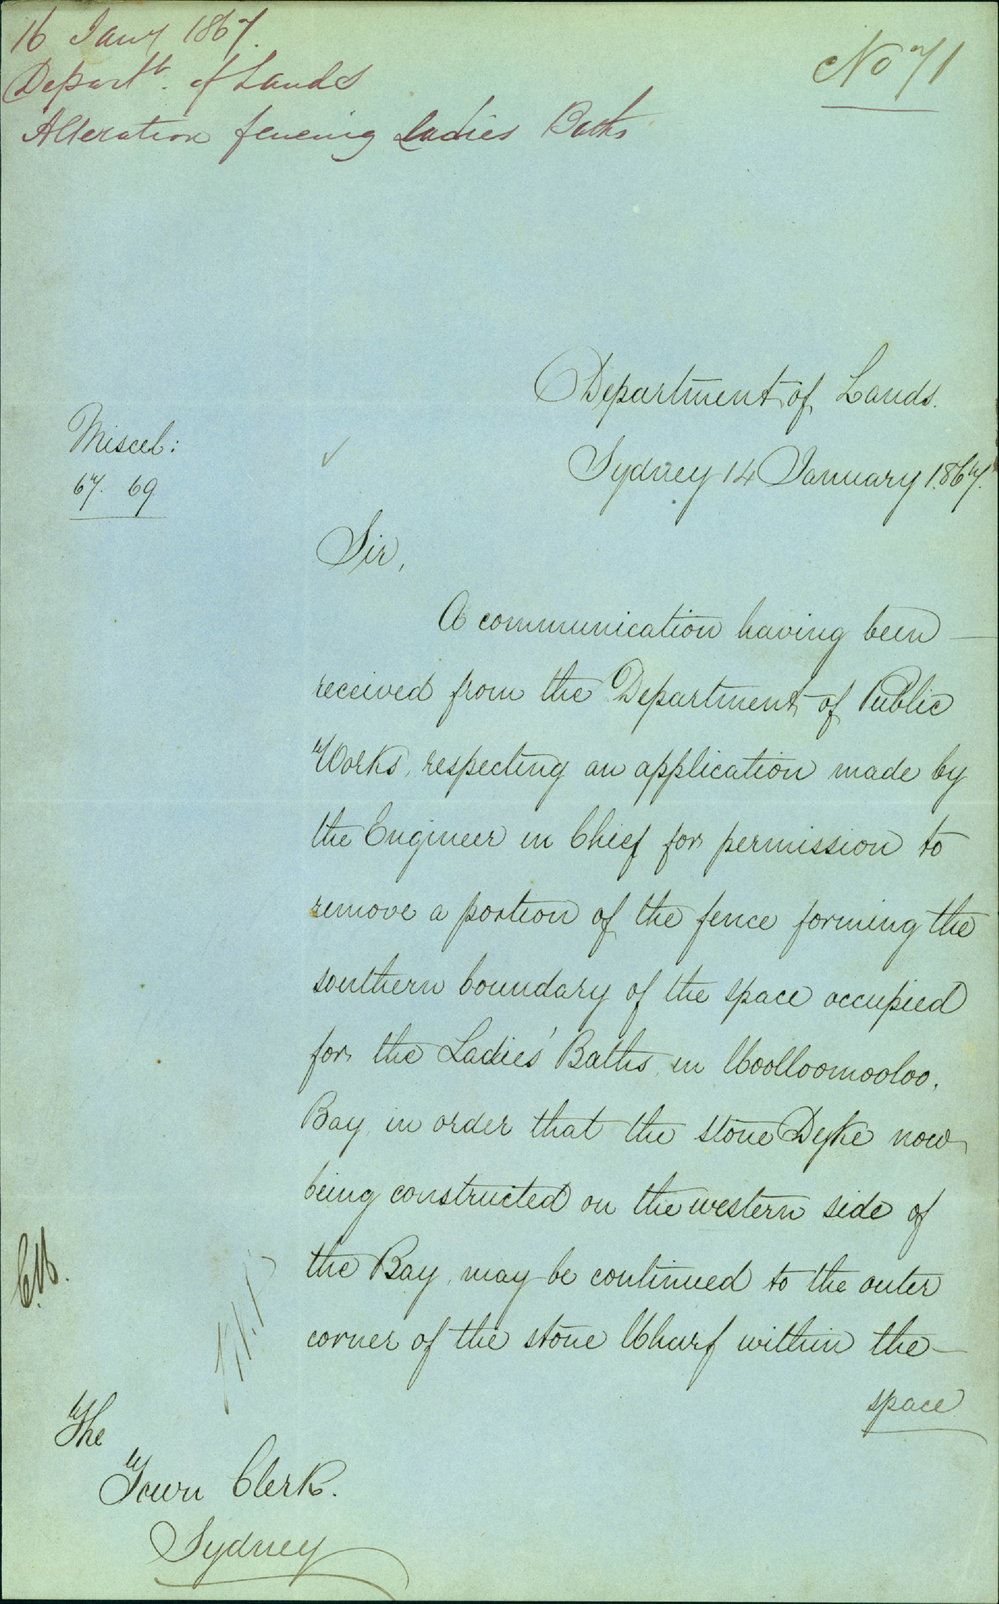 16 Jany 1867.
Departt. of Lands
Alteration fencing Ladies Baths
No 71
Department of Lands.
Sydney 14 January 1867.
Miscel:
67. 69
Sir,
A communication having been
received from the Department of Public
Works, respecting an application made by
the Engineer in Chief for permission to
remove a portion of the fence forming the
southern boundary of the space occupied
for the Ladies' Baths in Woolloomooloo
Bay in order that the stone Dyke now
being constructed on the western side of
the Bay, may be continued to the outer
corner of the stone Wharf within the
space
The
Town Clerk.
Sydney